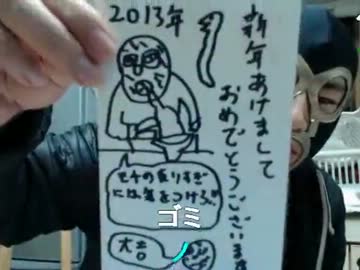 2013年
新年あけまして
おめでとうございます
モチの食いすぎ
には気をつけろ。
ゴミ
大吉